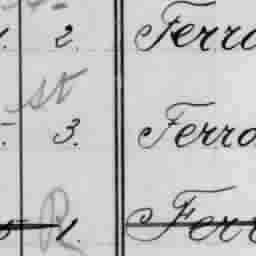 2. Ferro
st
3. Ferro
R 1. Ferr